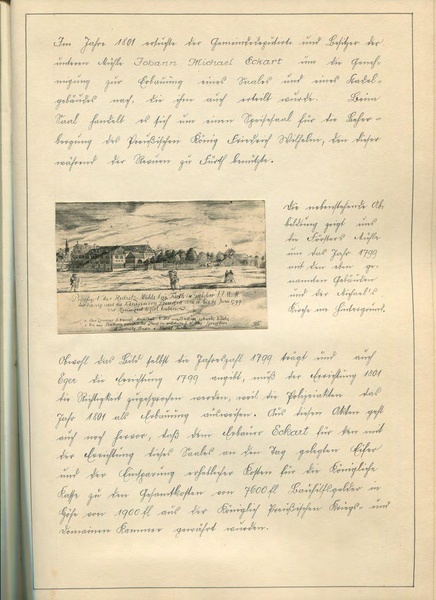 Im Jahre 1801 ersuchte der Gemeindedeputierte und Besitzer der
unteren Mühle Johann Michael Eckart um die Geneh-
migung zur Erbauung eines Saales und eines Stadel-
gebäudes nach, die ihm auch erteilt wurde. Beim
Saal handelt es sich um einen Speisesaal für die Beher-
bergung des Preußischen König Friedrich Wilhelm, den dieser
während der Revuen zu Fürth benützte.
Die nebenstehende Ab-
bildung zeigt uns
die Förstermühle
um das Jahr 1799
mit den oben ge-
nannten Gebäuden
und der Michaels
Kirche im Hintergrund.
Obwohl das Bild selbst die Jahreszahl 1799 trägt und auch
Eger die Errichtung 1799 angibt, muß der Errichtung 1801
die Richtigkeit zugesprochen werden, weil die Polizeiakten das
Jahr 1801 als Erbauung ausweisen. Aus diesen Akten geht
auch noch hervor, daß dem Erbauer Eckart für den mit
der Errichtung dieses Saales an den Tag gelegten Eifer
und der Einsparung erheblicher Kosten für die Königliche
Kasse zu den Gesamtkosten von 7600 fl Bauhilfsgelder in
Höhe von 1900 fl aus der Königlich Preußischen Kriegs- und
Domainen Kammer gewährt wurden.